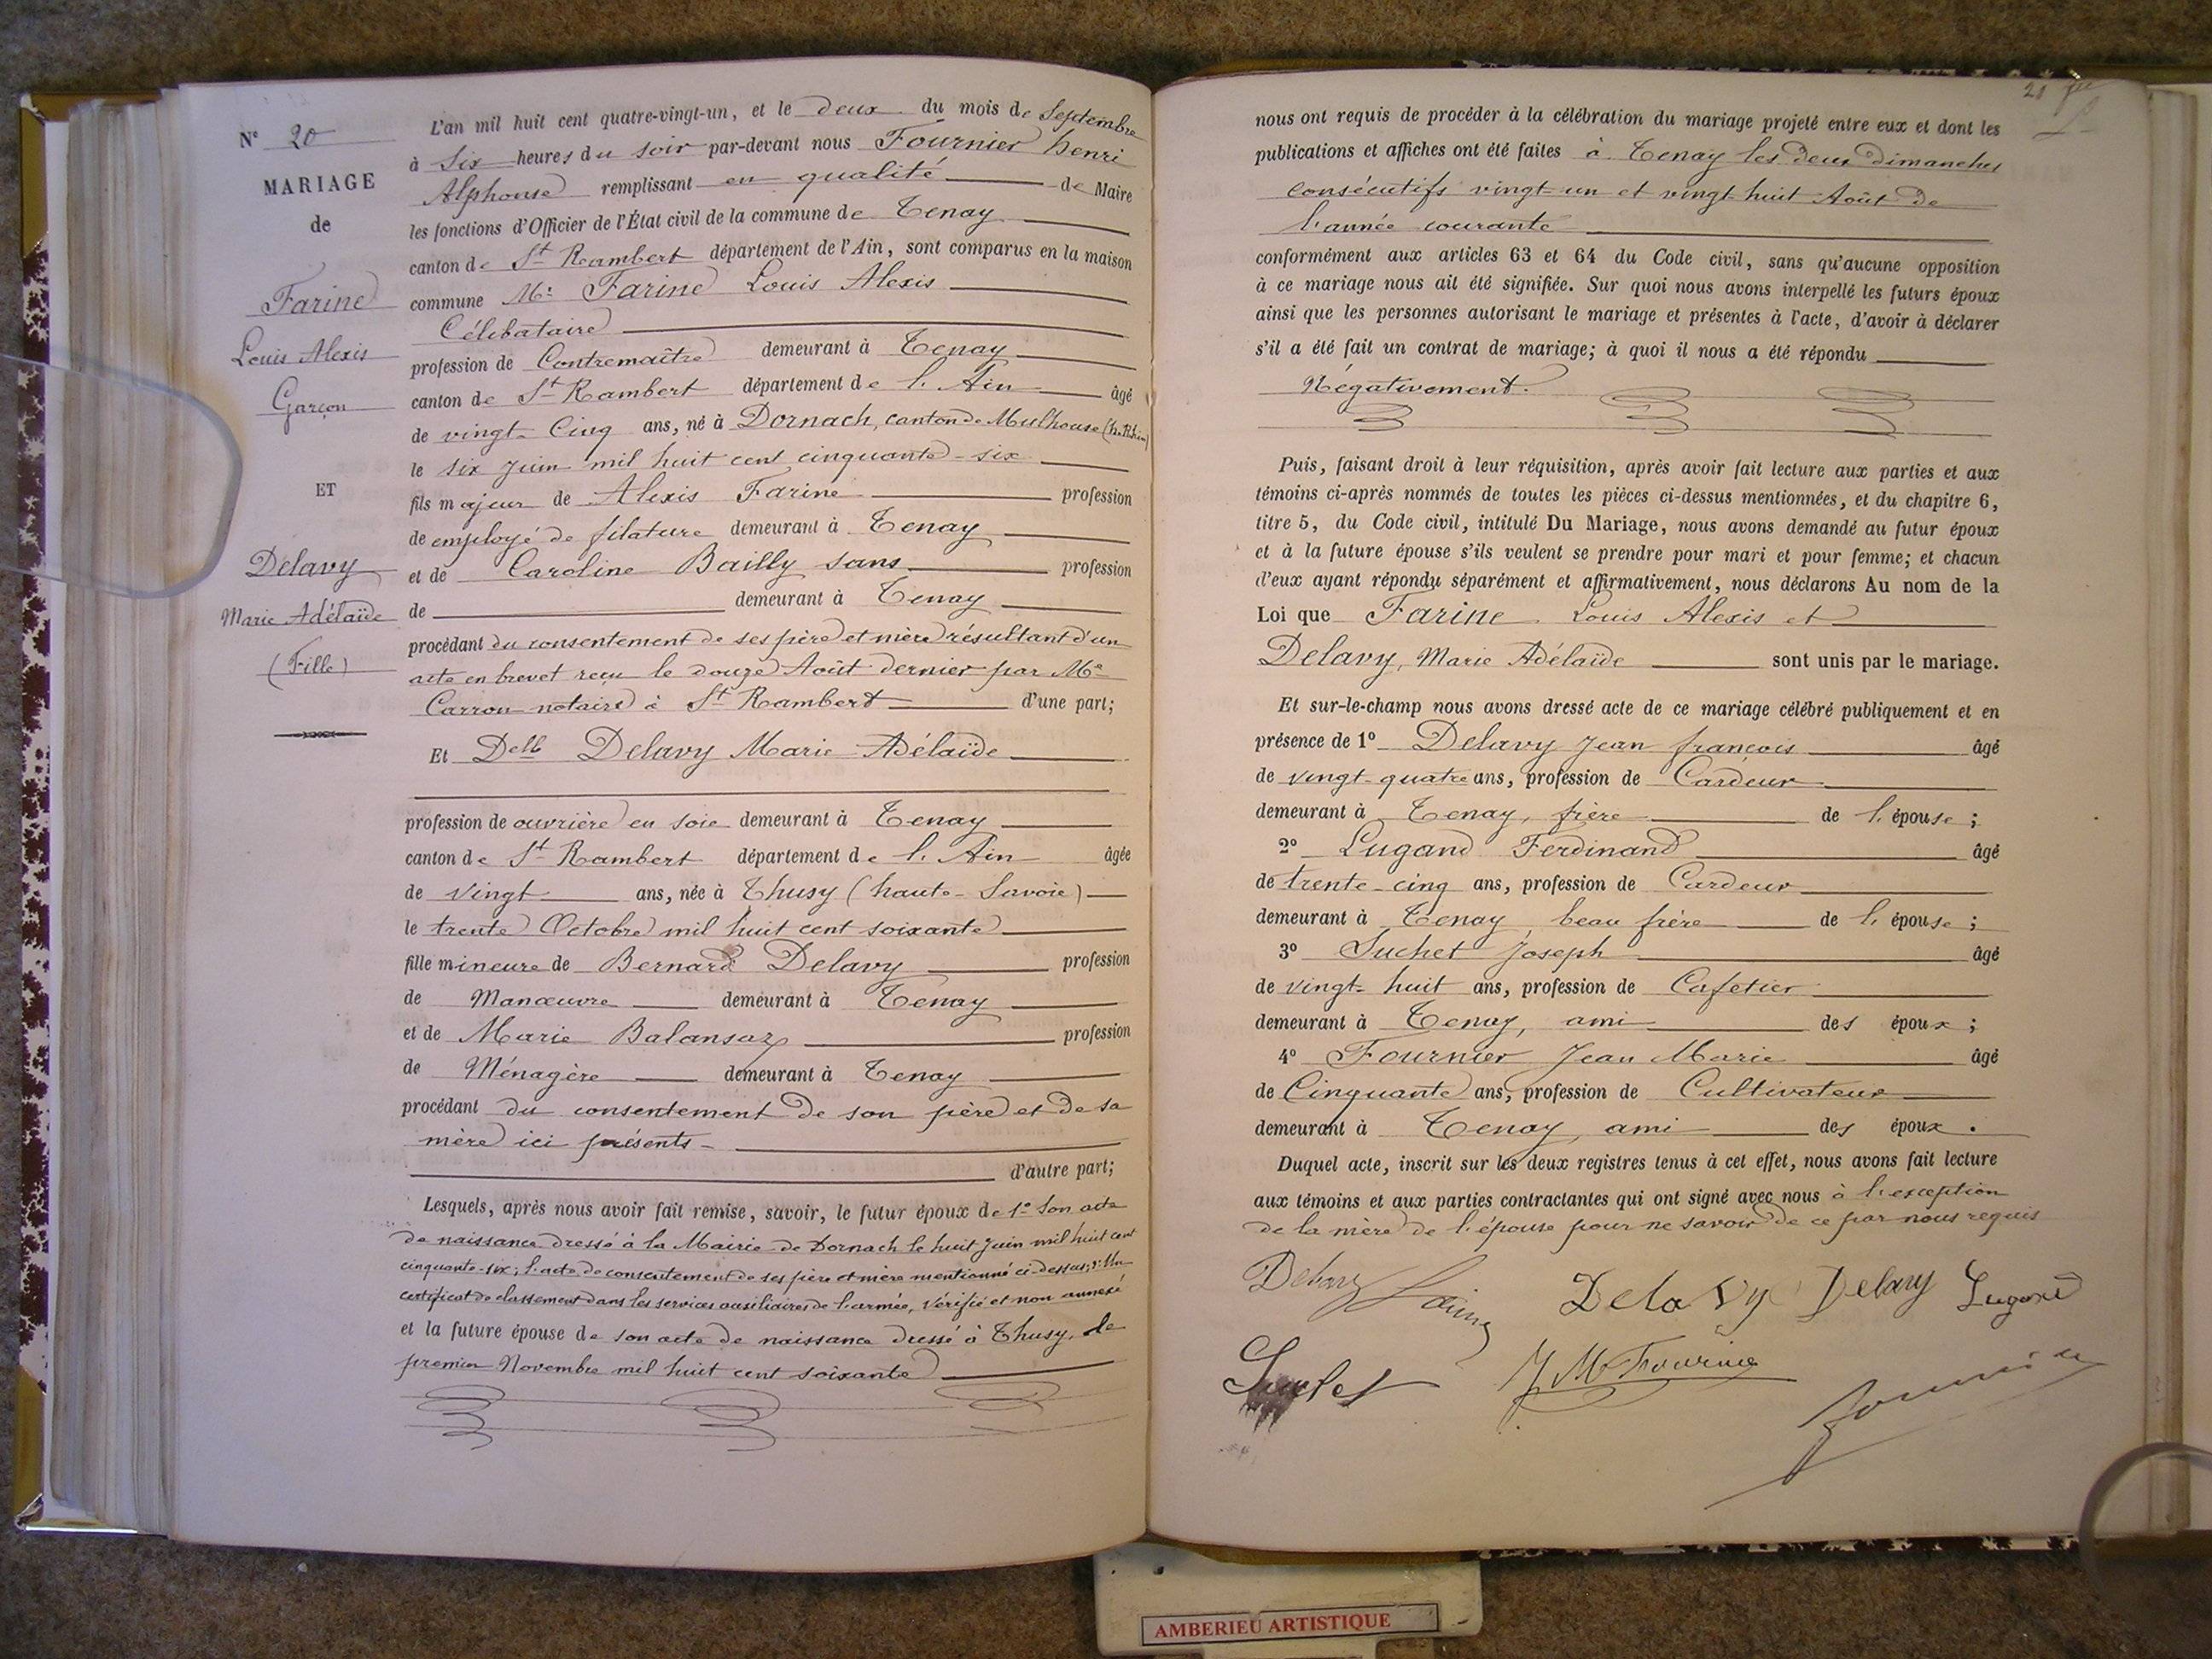 N° 20
MARIAGE
de
Farine
Louis Alexis
Garçon
ET
Delavy
Marie Adélaïde
(Fille)
L'an mil huit cent quatre-vingt-un, et le deux du mois de Septembre
à Six heures du soir par-devant nous Fournier henri
Alphonse remplissant en qualité de Maire
les fonctions d'Officier de l'État civil de la commune de Tenay
canton de St Rambert département de l'Ain, sont comparus en la maison
commune Mr Farine Louis Alexis
Célibataire
profession de Contremaître demeurant à Tenay
canton de St Rambert département de l'Ain âgé
de vingt-Cinq ans, né à Dornach, canton de Mulhouse (h. Rhin)
le six Juin mil huit cent cinquante-six
fils majeur de Alexis Farine profession
de employé de filature demeurant à Tenay
et de Caroline Bailly sans profession
de demeurant à Tenay
procédant du consentement de ses père et mère résultant d'un
acte en brevet reçu le douze Août dernier par Me
Carron notaire à St Rambert d'une part;
Et Delle Delavy Marie Adélaïde
profession de ouvrière en soie demeurant à Tenay
canton de St Rambert département de l'Ain âgée
de vingt ans, née à Thusy (haute-Savoie)
le trente Octobre mil huit cent soixante
fille mineure de Bernard Delavy profession
de Manœuvre demeurant à Tenay
et de Marie Balansaz profession
de Ménagère demeurant à Tenay
procédant du consentement de son père et de sa
mère ici présents
d'autre part;
Lesquels, après nous avoir fait remise, savoir, le futur époux de 1° Son acte
de naissance dressé à la Mairie de Dornach le huit Juin mil huit cent
cinquante-six; l'acte de consentement de ses père et mère mentionné ci-dessus; Un
certificat de classement dans les services auxiliaires de l'armée, vérifié et non annexé
et la future épouse de son acte de naissance dressé à Thusy, le
premier Novembre mil huit cent soixante
21
nous ont requis de procéder à la célébration du mariage projeté entre eux et dont les
publications et affiches ont été faites à Tenay les deux dimanches
consécutifs vingt-un et vingt-huit Août de
l'année courante
conformément aux articles 63 et 64 du Code civil, sans qu'aucune opposition
à ce mariage nous ait été signifiée. Sur quoi nous avons interpellé les futurs époux
ainsi que les personnes autorisant le mariage et présentes à l'acte, d'avoir à déclarer
s'il a été fait un contrat de mariage; à quoi il nous a été répondu
Négativement.
Puis, faisant droit à leur réquisition, après avoir fait lecture aux parties et aux
témoins ci-après nommés de toutes les pièces ci-dessus mentionnées, et du chapitre 6,
titre 5, du Code civil, intitulé Du Mariage, nous avons demandé au futur époux
et à la future épouse s'ils veulent se prendre pour mari et pour femme; et chacun
d'eux ayant répondu séparément et affirmativement, nous déclarons Au nom de la
Loi que Farine Louis Alexis et
Delavy, Marie Adélaïde sont unis par le mariage.
Et sur-le-champ nous avons dressé acte de ce mariage célébré publiquement et en
présence de 1° Delavy Jean françois âgé
de vingt-quatre ans, profession de Cardeur
demeurant à Tenay, frère de l'épouse;
2° Lugand Ferdinand âgé
de trente-cinq ans, profession de Cardeur
demeurant à Tenay, beau frère de l'épouse;
3° Suchet Joseph âgé
de vingt-huit ans, profession de Cafetier
demeurant à Tenay, ami des époux;
4° Fournier Jean Marie âgé
de Cinquante ans, profession de Cultivateur
demeurant à Tenay, ami des époux.
Duquel acte, inscrit sur les deux registres tenus à cet effet, nous avons fait lecture
aux témoins et aux parties contractantes qui ont signé avec nous à l'exception
de la mère de l'épouse pour ne savoir de ce par nous requis
Delavy Farine Delavy Delavy Lugand
Suchet J M Fournier Fournier
AMBERIEU ARTISTIQUE